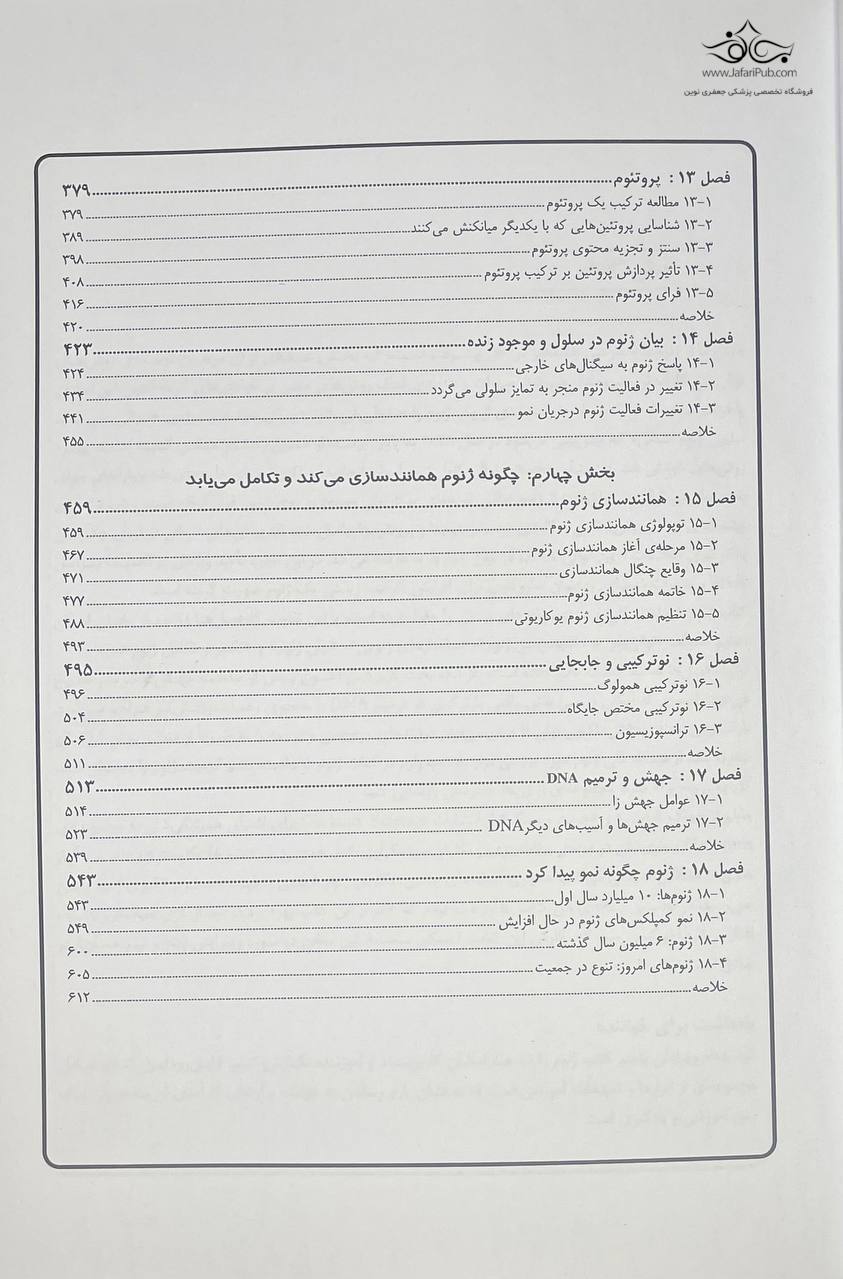 www.JafariPub.com
فروشگاه تخصصی پزشکی جعفری نوین
فصل ۱۳ : پروتئوم ........ ۳۷۹
۱۳-۱ مطالعه ترکیب یک پروتئوم ........ ۳۷۹
۱۳-۲ شناسایی پروتئین‌هایی که با یکدیگر میانکنش می‌کنند ........ ۳۸۹
۱۳-۳ سنتز و تجزیه محتوی پروتئوم ........ ۳۹۸
۱۳-۴ تأثیر پردازش پروتئین بر ترکیب پروتئوم ........ ۴۰۸
۱۳-۵ فرای پروتئوم ........ ۴۱۶
خلاصه ........ ۴۲۰
فصل ۱۴ : بیان ژنوم در سلول و موجود زنده ........ ۴۲۳
۱۴-۱ پاسخ ژنوم به سیگنال‌های خارجی ........ ۴۲۴
۱۴-۲ تغییر در فعالیت ژنوم منجر به تمایز سلولی می‌گردد ........ ۴۳۴
۱۴-۳ تغییرات فعالیت ژنوم درجریان نمو ........ ۴۴۱
خلاصه ........ ۴۵۵
بخش چهارم: چگونه ژنوم همانندسازی می‌کند و تکامل می‌یابد
فصل ۱۵ : همانندسازی ژنوم ........ ۴۵۹
۱۵-۱ توپولوژی همانندسازی ژنوم ........ ۴۵۹
۱۵-۲ مرحله‌ی آغاز همانندسازی ژنوم ........ ۴۶۷
۱۵-۳ وقایع چنگال همانندسازی ........ ۴۷۱
۱۵-۴ خاتمه همانندسازی ژنوم ........ ۴۷۷
۱۵-۵ تنظیم همانندسازی ژنوم یوکاریوتی ........ ۴۸۸
خلاصه ........ ۴۹۳
فصل ۱۶ : نوترکیبی و جابجایی ........ ۴۹۵
۱۶-۱ نوترکیبی همولوگ ........ ۴۹۶
۱۶-۲ نوترکیبی مختص جایگاه ........ ۵۰۴
۱۶-۳ ترانسپوزیسیون ........ ۵۰۶
خلاصه ........ ۵۱۱
فصل ۱۷ : جهش و ترمیم DNA ........ ۵۱۳
۱۷-۱ عوامل جهش زا ........ ۵۱۴
۱۷-۲ ترمیم جهش‌ها و آسیب‌های دیگر DNA ........ ۵۲۳
خلاصه ........ ۵۳۹
فصل ۱۸ : ژنوم چگونه نمو پیدا کرد ........ ۵۴۳
۱۸-۱ ژنوم‌ها: ۱۰ میلیارد سال اول ........ ۵۴۳
۱۸-۲ نمو کمپلکس‌های ژنوم در حال افزایش ........ ۵۴۹
۱۸-۳ ژنوم: ۶ میلیون سال گذشته ........ ۶۰۰
۱۸-۴ ژنوم‌های امروز: تنوع در جمعیت ........ ۶۰۵
خلاصه ........ ۶۱۲